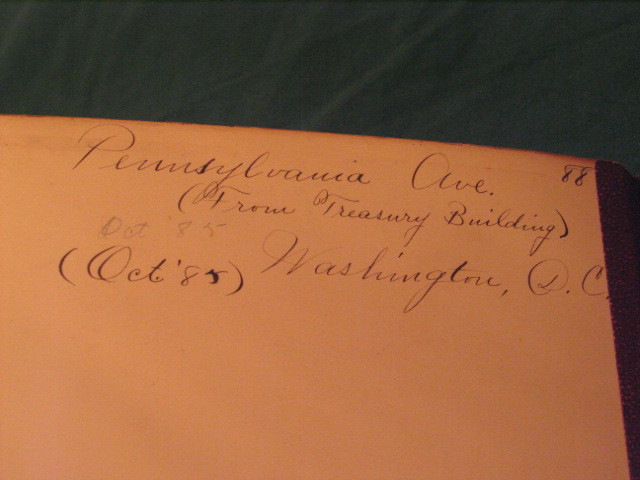 Pennsylvania Ave. 88
(From Treasury Building)
Oct '85
(Oct. '85) Washington, D.C.